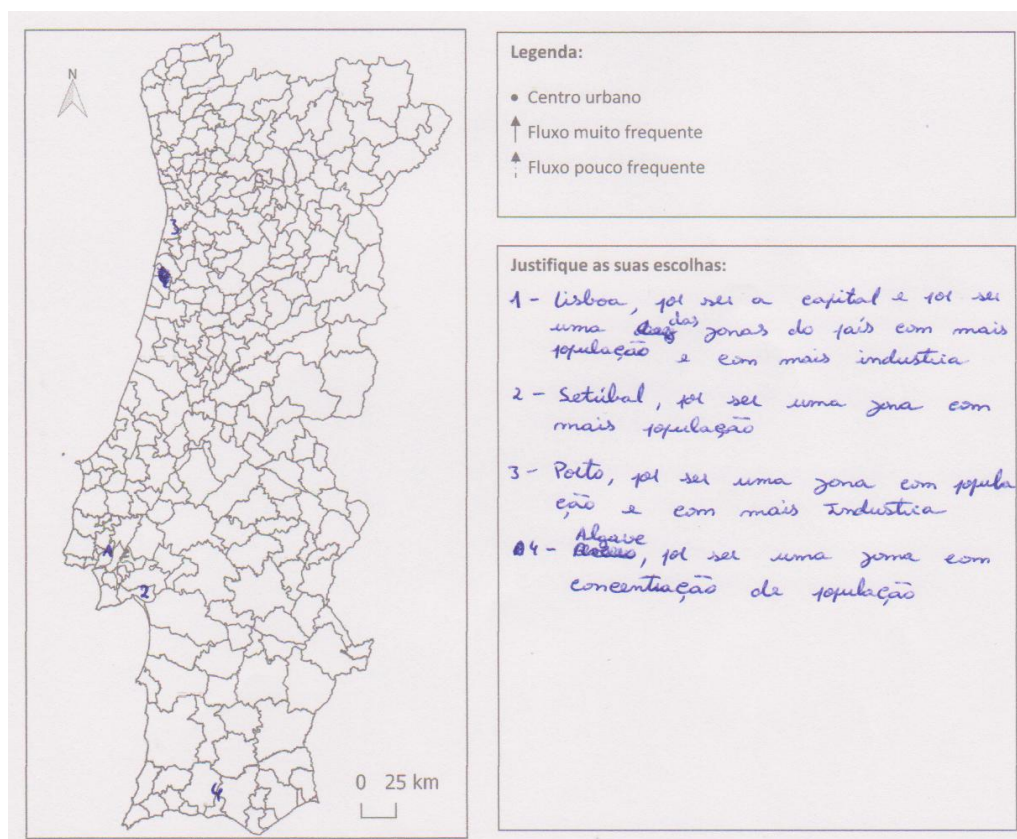 N
3
1
2
4
0 25 km
Legenda:
Centro urbano
Fluxo muito frequente
Fluxo pouco frequente
Justifique as suas escolhas:
1 - Lisboa, por ser a capital e por ser
uma das zonas do país com mais
população e com mais industria
2 - Setúbal, por ser uma zona com
mais população
3 - Porto, por ser uma zona com popula
ção e com mais Industria
4 - Algave, por ser uma zona com
concentração de população